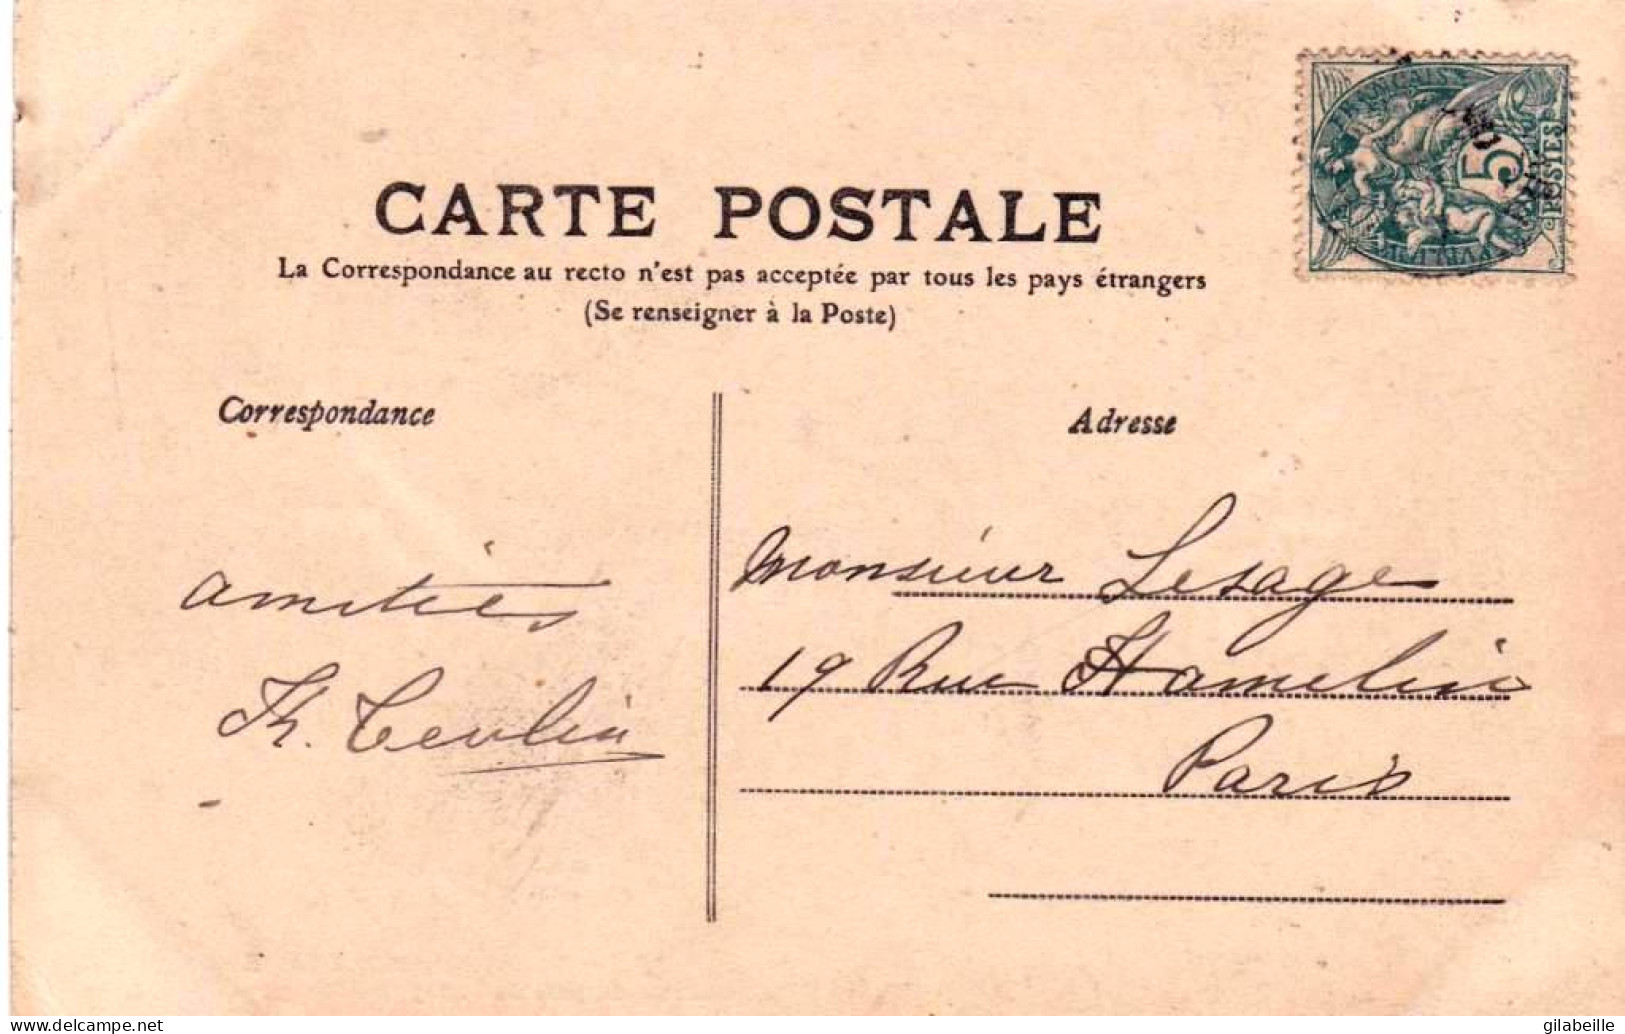 CARTE POSTALE
La Correspondance au recto n'est pas acceptée par tous les pays étrangers
(Se renseigner à la Poste)
FRANÇAISE
5
POSTES
Correspondance
Adresse
amitiés
Monsieur Lesage
19 Rue Hamelin
Paris
www.delcampe.net
gilabeille